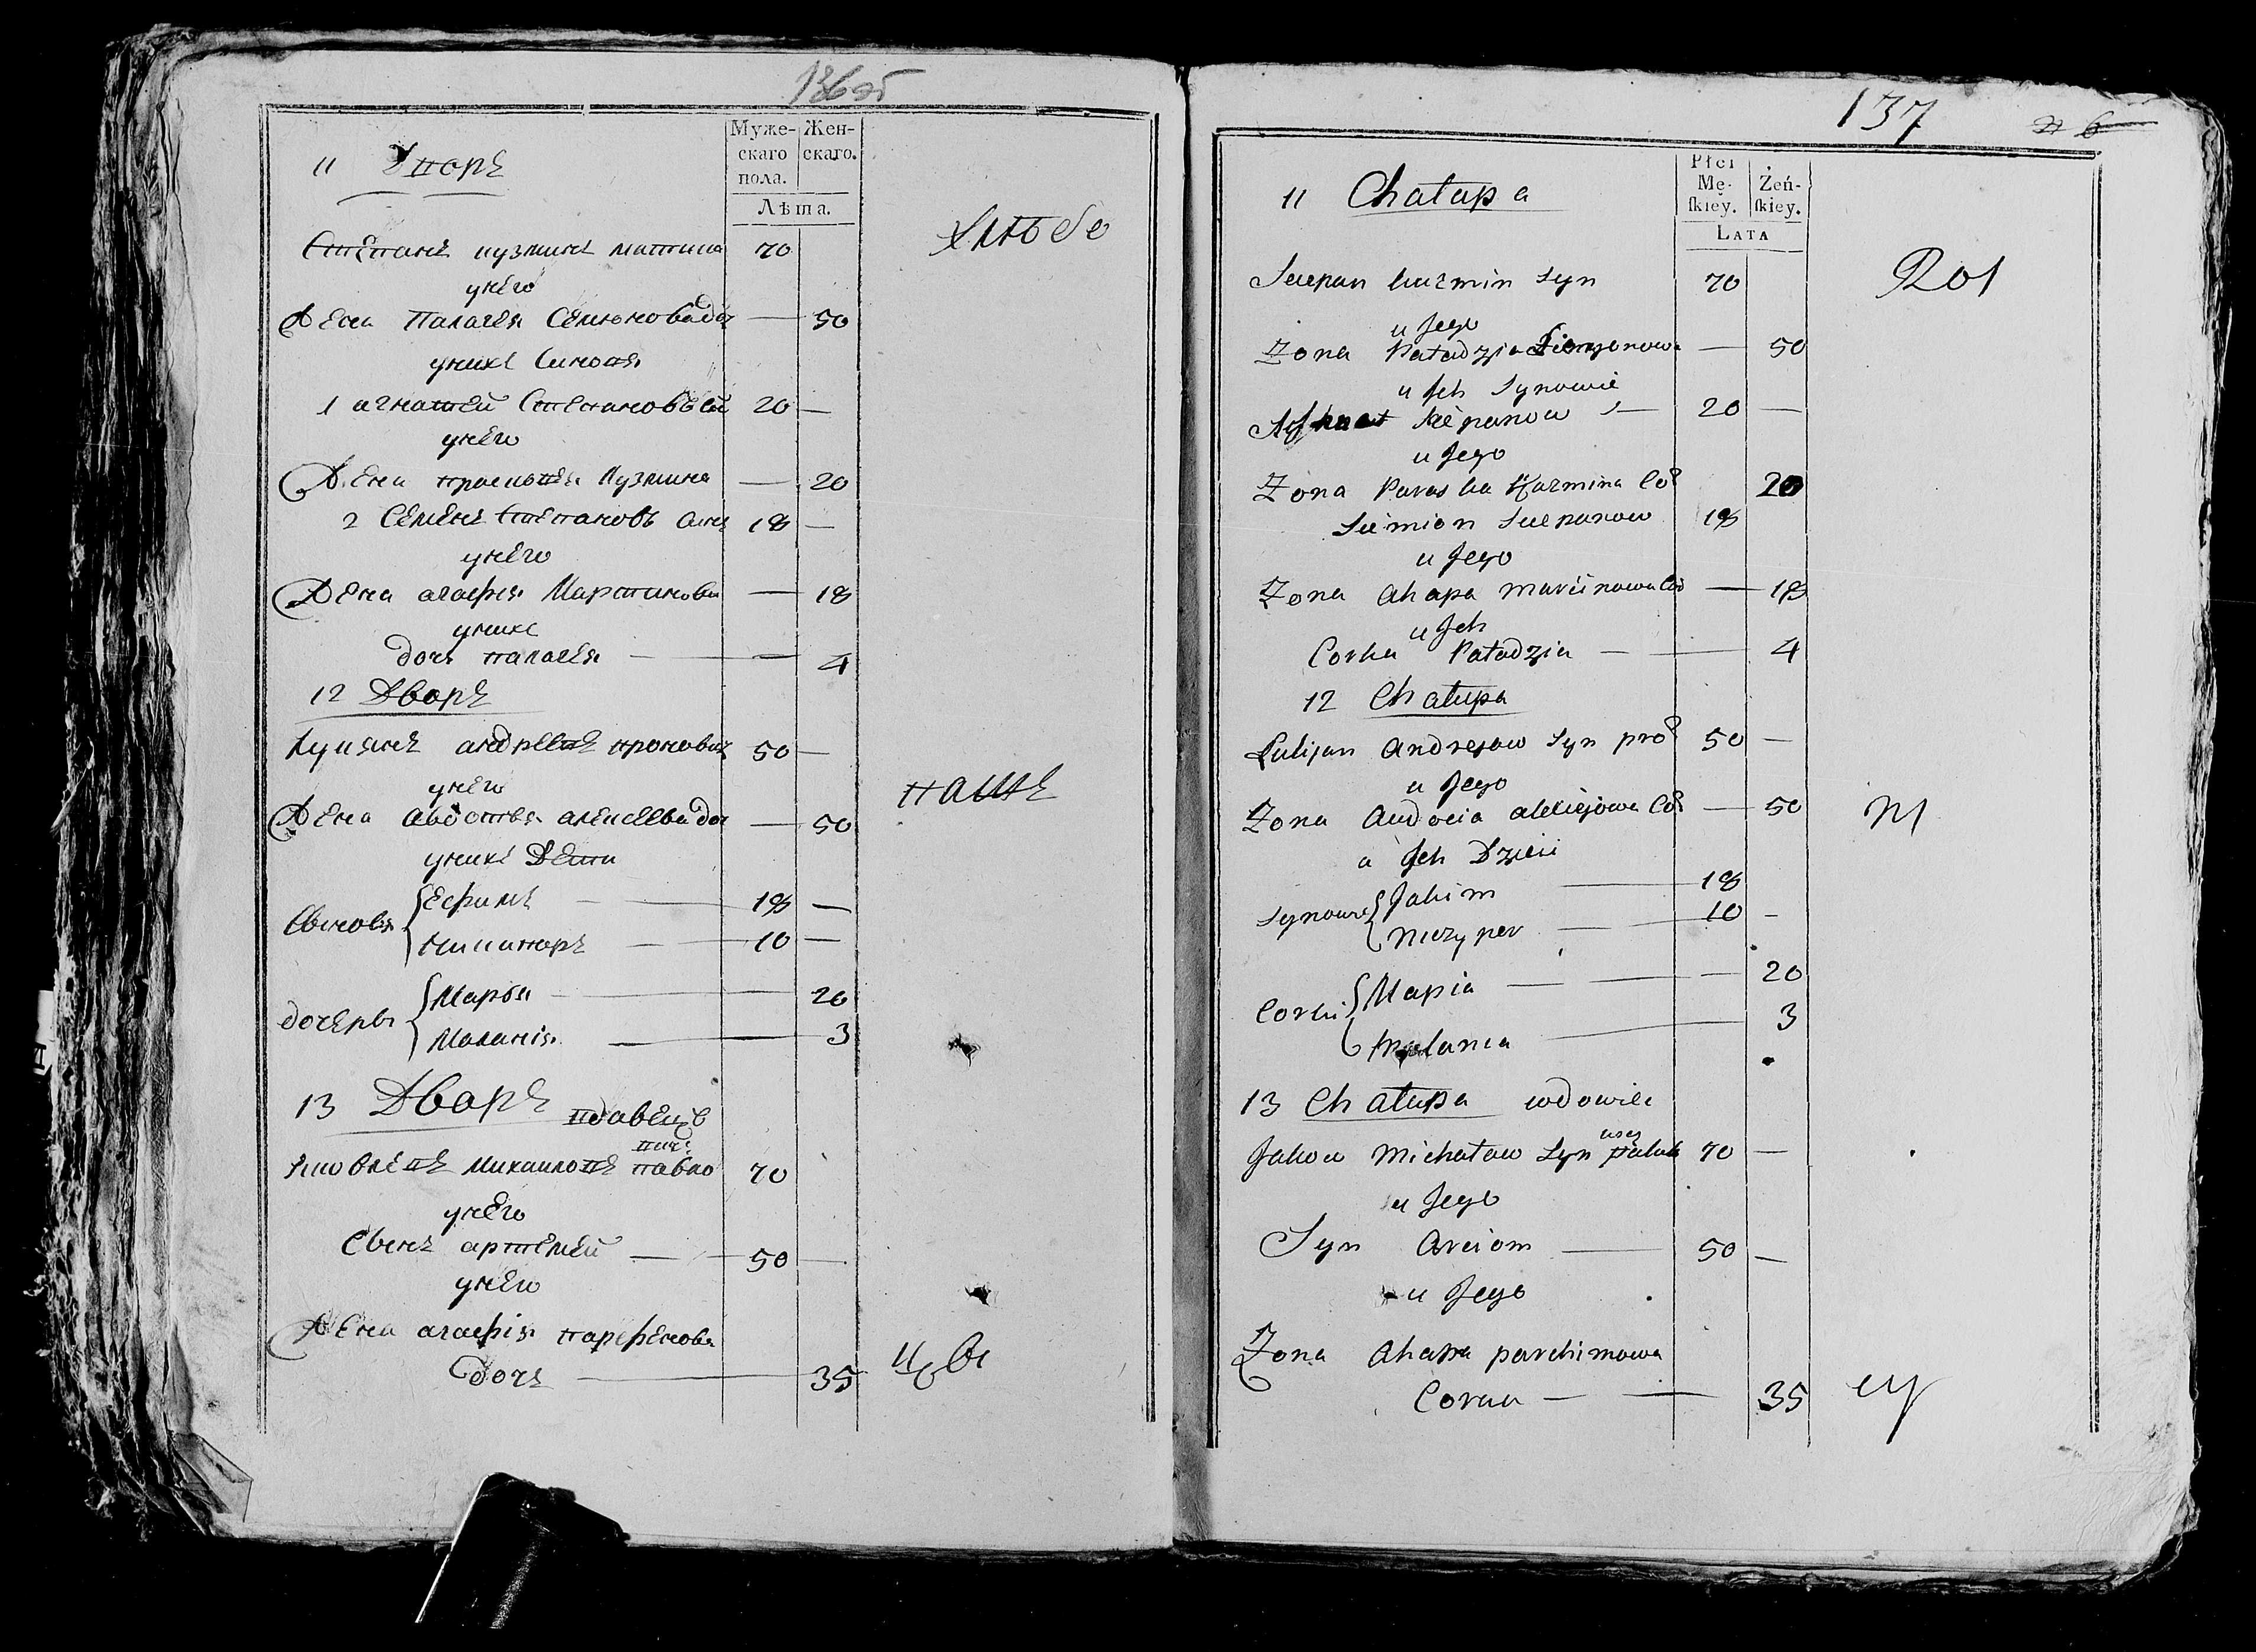 136 об
Муже- Жен-
скаго скаго.
пола.
Лѣта.
11 Дворъ
Степанъ кузминъ 70
унего
Жена Палагея Семионова доч — 50
унихъ Синовя
1 агнатей Степановъ син 20 —
унего
Жена прасковея Кузмина — 20
2 Семенъ Степановъ синъ 18 —
унего
Жена агафия Мартинова — 18
унихъ
дочь палагея — 4
12 Дворъ
лукянъ андреевъ 50 —
унего
Жена Авдотея алексеева доч — 50
унихъ Дети
Свиновя { Ефимъ — 18 —
Никипоръ — 10 —
дочеры { Марья — 20
Маланія — 3
13 Дворъ
Яковлевъ михаиловъ 70
унего
Свинъ артемей — 50 —
унего
Жена агафія парфенова
дочъ — 35
137
Płci
Mę- Żeń-
ſkiey. ſkiey.
Lata
11 Chałupa
Sciepan kuzmin Syn 70
u Jego
Żona Paładzia Siemionowa — 50
u Jch Synowie
Sciepanow — 20 —
u Jego
Żona Paraska Kuzmina Co 20
Siemion Sciepanow 18
u Jego
Żona Ahapa marcinowa Co — 18
u Jch
Corka Paładzia — 4
12 Chałupa
Łukjan Andrejow Syn pro 50 —
u Jego
Żona Audocia alexiejowa Co — 50
u Jch Dzieci
Synowie { Jakim — 18
Niczyper — 10 —
Corki { Maria — 20
Małania — 3
13 Chałupa wdowiec
Jakow Michałow Syn 70 —
u Jego
Syn Arciom — 50 —
u Jego
Żona Ahapa parchimowa
Corka — 35